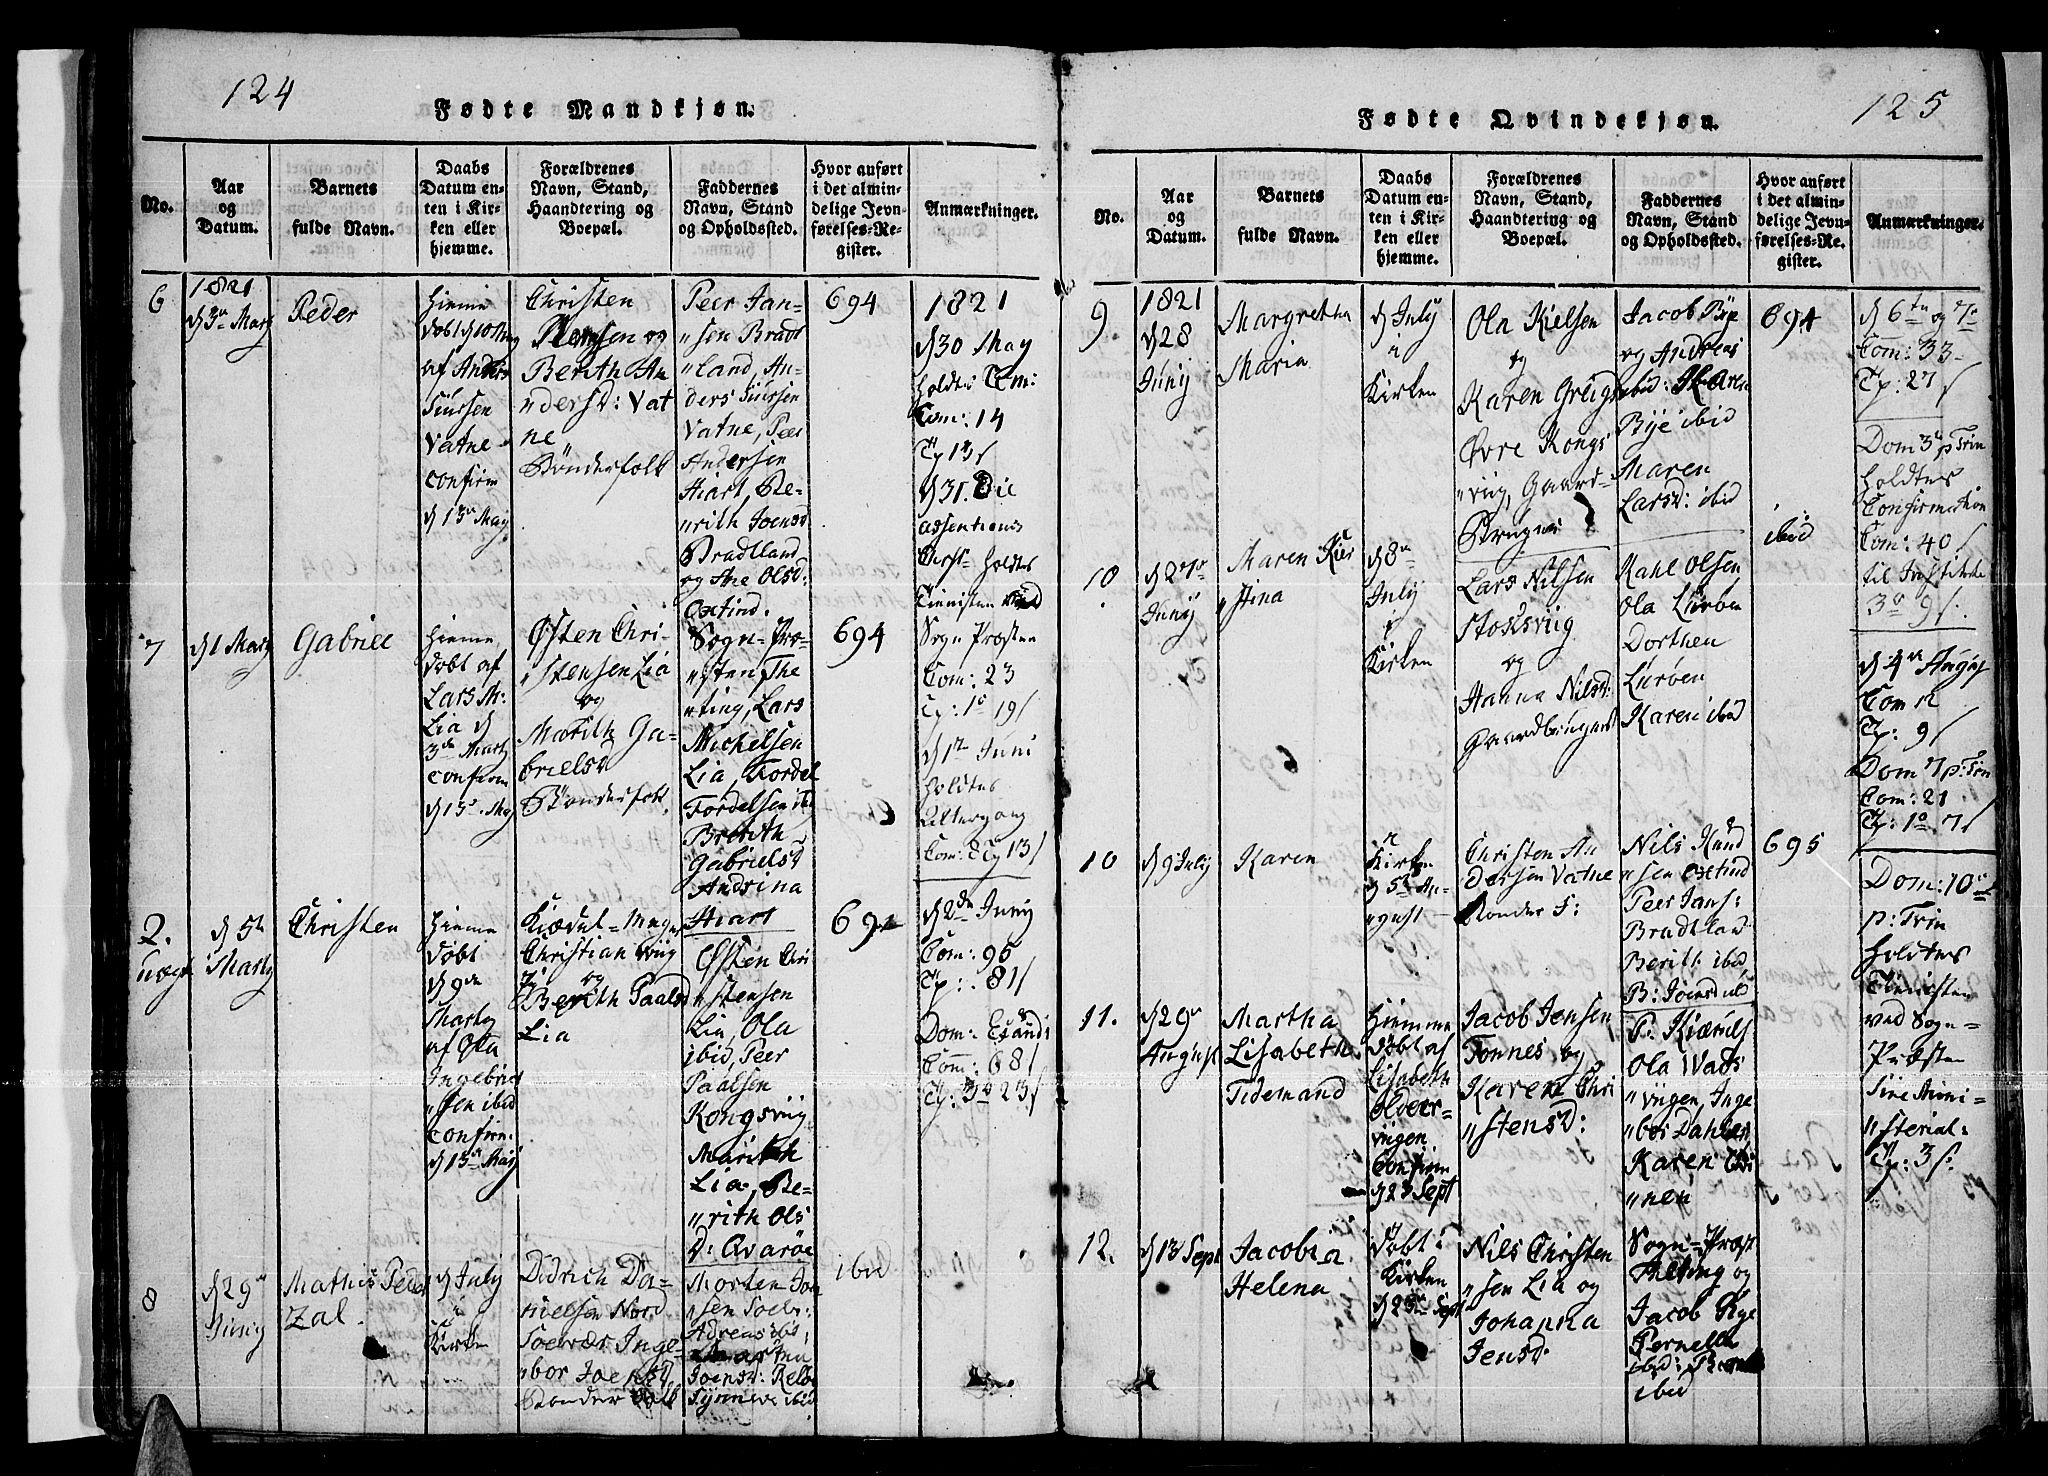 124
Fødte Mandkjøn.
No.
Aar
og
Datum.
Barnets
fulde Navn.
Daabs
Datum en-
ten i Kir-
ken eller
hjemme.
Forældrenes
Navn, Stand,
Haandtering og
Boepæl.
Faddernes
Navn, Stand
og Opholdssted.
Hvor anført
i det almin-
delige Jevn-
førelses-Re-
gister.
Anmærkninger.
6
1821
d 3 Marty
Peder
Hiemme
døbt d 10 May
af Anders
Siursen
Vatne
confirm
d 13 May
Christen
Jensen og
Berith An
"dersd: Vat
ne
Bønderfolk
Peer Jan-
"sen Bradt
"land, An-
ders Siursen
Vatne, Peer
Andersen
Hiart, Be-
"rith Joensd
Bradtland
og Ane Olsd:
Oxtind.
694
1821
d 30 May
holdtes Com:
Com: 14
d 31. Die
assentionis
Christ- holdtes
Tienisten
7
d 1 Marty
Gabriel
Hiemme
døbt af
Lars M:
Lia d
3de Marty
confirm
d 13 May
Østen Chri-
"stensen Lia
og
Marith Ga-
brielsd
Bønderfolk
Sogn-Præ-
"sten The
"ting, Lars
Michelsen
Lia, Tordel
Tordelsen ibid
Berith
Gabrielsd
Andrina
Hiart
694
Sogn Præsten
Com: 23
Tp: 1 19/
d 1te Juni
holdtes
Altergang
Com: Tp 13/
2.
uægt
d 5te
Marty
Christen
Hiemme
døbt
d 9de
Marty
af Ola
Ingebrigt
"sen ibid
confirm.
d 13 May
Christian
og
Berith Paalsd
Lia
Østen Chri
"stensen
Lia, Ola
ibid, Peer
Paalsen
Kongsviig
Marith
Lia, Be-
"rith Ols
D: Qvarøe
694
d 2den Juny
Com: 95
Tp: 81/
Dom: Exaudi
Com: 68/
Tp: 3 23/
8
d 29
Juny
Mathis Peder
Zal.
d July
i
Kirken
Didrich Da-
nielsen Nord
Soevær Inge-
"bor Joensd
Bønder Folk
Morten Jon
"sen Soev:
Adreas ibi;
Joensd:
Synneve ibid
ibid
125
Fødte Qvindekjøn.
No.
Aar
og
Datum.
Barnets
fulde Navn.
Daabs
Datum en-
ten i Kir-
ken eller
hjemme.
Forældrenes
Navn, Stand,
Haandtering og
Boepæl.
Faddernes
Navn, Stand
og Opholdssted.
Hvor anført
i det almin-
delige Jevn-
førelses-Re-
gister.
Anmærkninger.
9
1821
d 28
Juny
Margretha
Maria
d July
i
Kirken
Ola Kielsen
og
Karen Greigs
Øvre Kongs
"viig, Gaard-
Brugere
Jacob Bye
og Andreas
ibid: Karen
Bye ibid
Maren
Larsd: ibid
694
d 6te og 7
Com: 33
Tp: 27/
Dom 3 p Trin
holdtes
Confirmation
Com: 40/
til
3 9/.
10
d 27
Juny
Maren Kier
"stina
d 8
July
i
Kirken
Lars Nilsen
Stoksviig
og
Hanna Nilsd:
Gaardbruger
Kahl Olsen
Ola Lurøen
Dorthea
Lurøen
Karen ibid
ibid
d 4 August
Com 12
Tp: 9/
Dom 7 p: Trin
Com: 21
Tp: 1 7/
10
d 9 July
Karen
i
Kirken
d 5te Au-
"gust
Christen An
dersen Vatne
Bønder F:
Nils Knud
"sen Oxtind
Peer Jans:
Bradtland
Berith ibid
B: Joensd ibid
695
Dom: 10
p: Trin
holdtes
Tienisten
ved Sogn-
Præsten
sine Mini-
"sterial:
Tp: 3/:
11.
d 29
August
Martha
Lisabeth
Tidemand
Hiemme
døbt af
Lisabeth
Confirm
d 23 Sept
Jacob Jensen
Tonnes og
Karen Chri
"stensd:
Ola Wats
"viigen, Inge
"bor Dahlen
Karen
12.
d 13 Sept
Jacobia
Helena
Døbt i
Kirken
d 23 Sept
Nils Christen
"sen Lia og
Johanna
Jensd.
Sogn-Præst
Thelting og
Jacob Bye
Pernella
ibid:
ibid